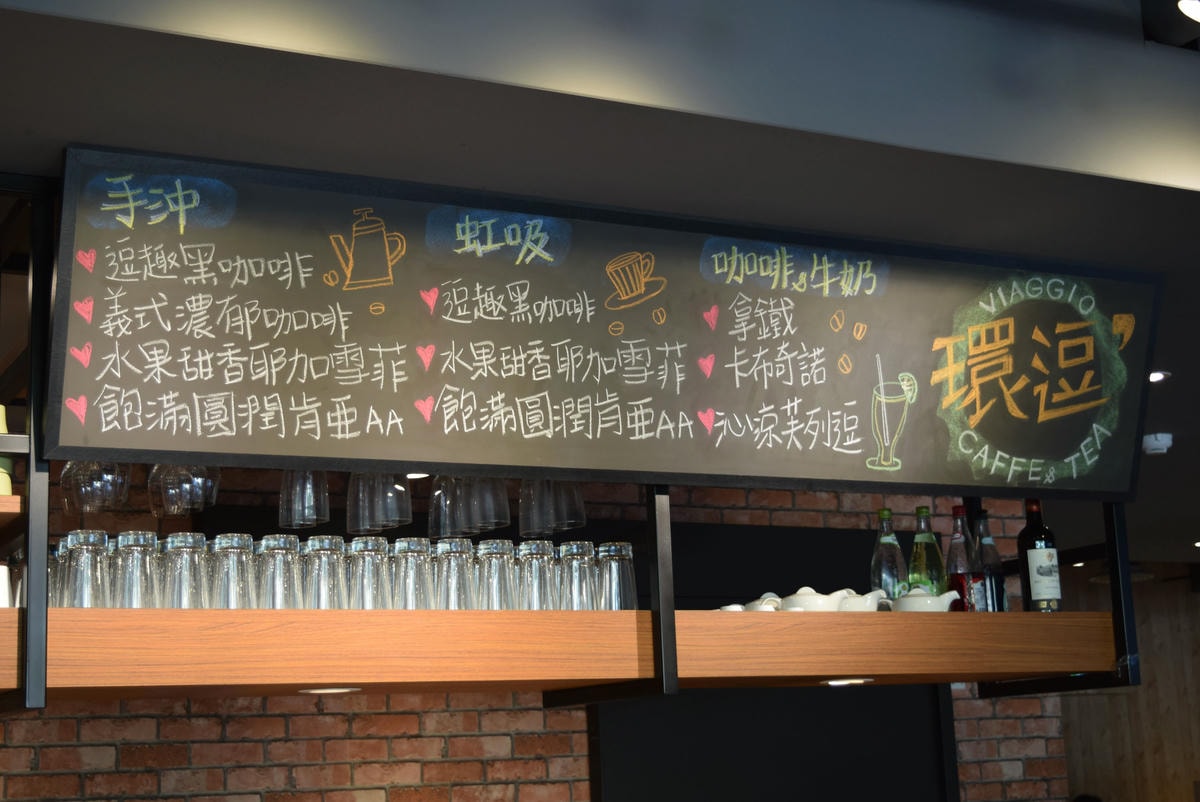 手沖
逗趣黑咖啡
義式濃郁咖啡
水果甜香耶加雪菲
飽滿圓潤肯亜AA
虹吸
逗趣黑咖啡
水果甜香耶加雪菲
飽滿圓潤肯亜AA
咖啡&牛奶
拿鐵
卡布奇諾
沁涼芙列逗
VIAGGIO
環逗
CAFFE & TEA